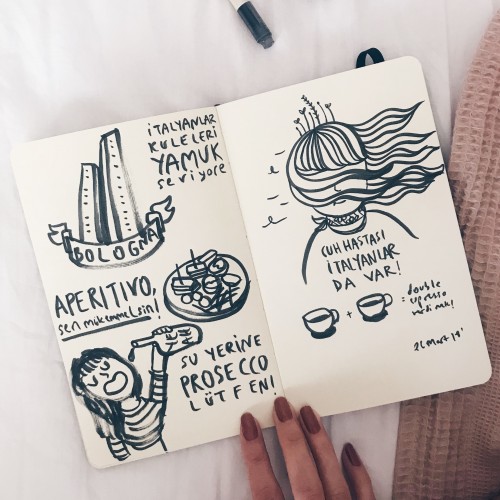 İTALYANLAR
KULELERİ
YAMUK
seviyore
BOLOGNA
APERITIVO,
sen mükemmelsin!
SU YERİNE
PROSECCO
LÜTFEN!
RUH HASTASI
İTALYANLAR
DA VAR!
+ = double
espresso